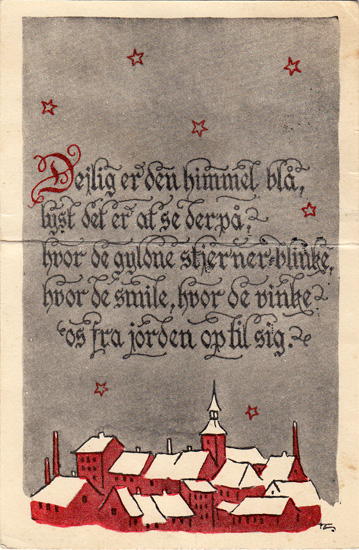 Dejlig er den himmel blå,
lyst det er at se derpå,
hvor de gyldne stjerner blinke,
hvor de smile, hvor de vinke
os fra jorden op til sig.